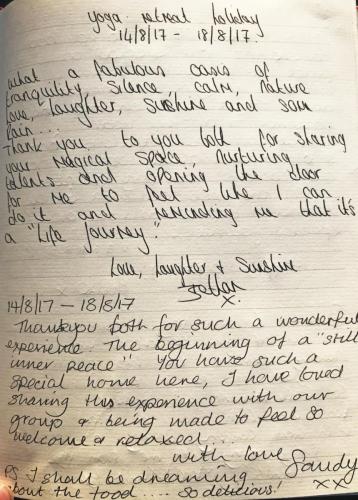 yoga retreat holiday
14/8/17 - 18/8/17.
What a fabulous oasis of
tranquility, silence, calm, nature
love, laughter, sunshine and som
rain...
Thank you to you both for sharing
your magical space, nurturing
talents and opening the door
for me to feel like I can
do it and reminding me that it's
a "Life Journey".
Love, Laughter + Sunshine
x.
14/8/17 - 18/8/17
Thankyou both for such a wonderful
experience. The beginning of a "still
inner peace". You have such a
special home here, I have loved
sharing this experience with our
group & being made to feel so
welcome & relaxed...
with love Sandy
xx
PS I shall be dreaming
'bout the food .... so delicious!